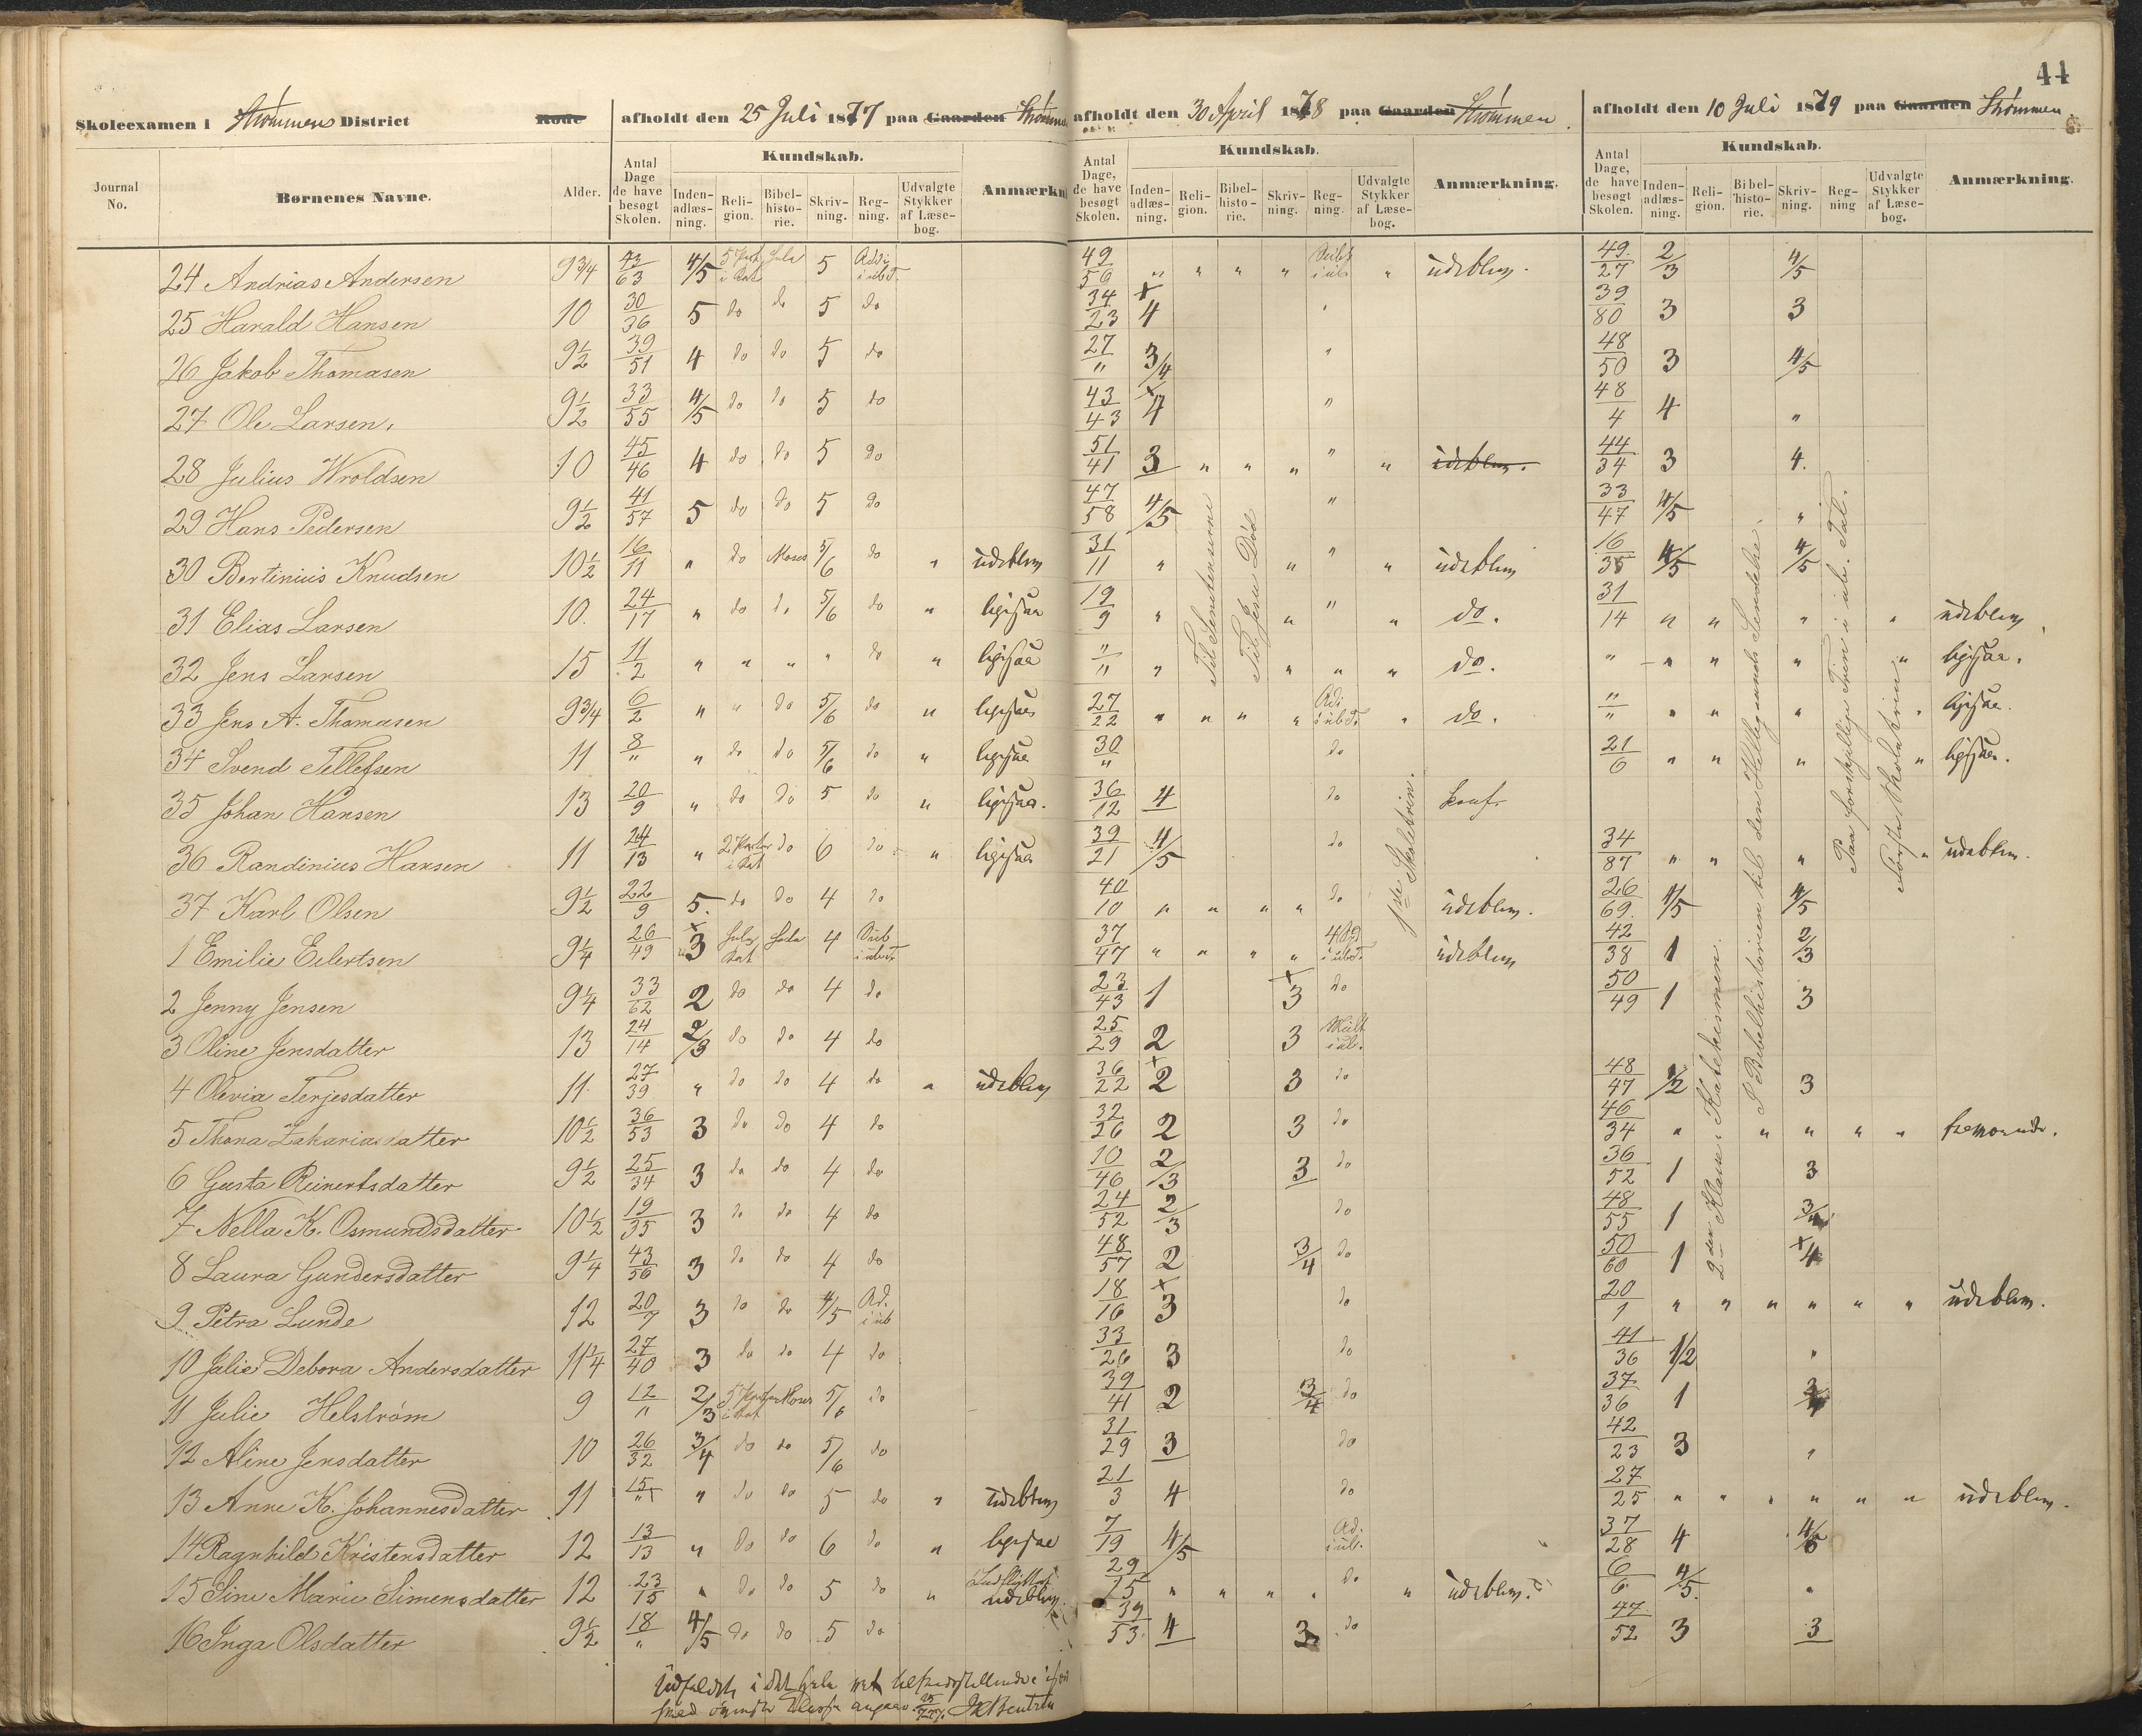 44
Skoleexamen i Strømmens District Rode afholdt den 25 Juli 1877 paa Gaarden Strømmen afholdt den 30 April 1878 paa Gaarden Strømmen. afholdt den 10 Juli 1879 paa Gaarden Strømmen
Journal No. Børnenes Navne. Alder. Antal Dage de have besøgt Skolen. Kundskab. Inden-adlæs-ning. Reli-gion. Bibel-histo-rie. Skriv-ning. Reg-ning. Udvalgte Stykker af Læse-bog. Anmærkn
Antal Dage, de have besøgt Skolen. Kundskab. Inden-adlæs-ning. Reli-gion. Bibel-histo-rie. Skriv-ning. Reg-ning. Udvalgte Stykker af Læse-bog. Anmærkning.
Antal Dage, de have besøgt Skolen. Kundskab. Inden-adlæs-ning. Reli-gion. Bibel-histo-rie. Skriv-ning. Reg-ning Udvalgte Stykker af Læse-bog. Anmærkning.
24 Andrias Andersen 9 3/4 43/63 4/5 5 Part i Kat hele 5 Adi i ubt. 49/56 " " " " " udeblev. 49/27 2/3 4/5
25 Harald Hansen 10 30/36 5 do do 5 do 34/23 x4 " 39/80 3 3
26 Jakob Thomasen 9 1/2 39/51 4 do do 5 do 27/" 3/4 " 48/50 3 4/5
27 Ole Larsen, 9 1/2 33/55 4/5 do do 5 do 43/43 x4 " 48/4 4 "
28 Julius Wroldsen 10 45/46 4 do do 5 do 51/41 3 " " " " " udeblev. 44/34 3 4.
29 Hans Pedersen 9 1/2 41/57 5 do do 5 do 47/58 4/5 " 33/47 4/5 "
30 Bertinius Knudsen 10 1/2 16/11 " do Moses 5/6 do " udeblev 31/11 " " " " udeblev 16/35 4/5 4/5
31 Elias Larsen 10. 24/17 " do do 5/6 do " ligesaa 19/9 " " " " do. 31/14 " " " " udeblev
32 Jens Larsen 15 11/2 " " " " do " ligesaa "/" " " " " do. " " " " " ligesaa.
33 Jens A. Thomasen 9 3/4 6/2 " " do 5/6 do " ligesaa 27/22 " " " " Adi i ubt. " do. "/" " " " " ligesaa.
34 Svend Tellefsen 11 8/" " do do 5/6 do " ligesaa 30/" do 21/6 " " " " ligesaa.
35 Johan Hansen 13 20/9 " do do 5 do " ligesaa. 36/12 4 do konf.
36 Randinius Hansen 11 24/13 " 2 Parter i Kat do 6 do " ligesaa 39/21 4/5 do 34/87 " " " " udeblev.
37 Karl Olsen 9 1/2 22/9 5. do do 4 do 40/10 " " " " do udeblev. 26/69. 4/5 4/5
1 Emilie Eilertsen 9 1/4 26/49 x3 hele Kat hele 4 Sub i ubt. 37/47 " " " " udeblev 42/38 1 2/3
2 Jenny Jensen 9 1/4 33/62 2 do do 4 do 23/43 1 x3 do 50/49 1 3
3 Oline Jensdatter 13 24/14 2/3 do do 4 do 25/29 2 3 Mult i ub.
4 Olevia Terjesdatter 11. 27/39 " do do 4 do " udeblev 36/22 x2 3 do 48/47 1/2 3
5 Thona Zakariasdatter 10 1/2 36/53 3 do do 4 do 32/26 2 3 do 46/34 " " " " "
6 Gusta Reinertsdatter 9 1/2 25/34 3 do do 4 do 10/46 2/3 3 do 36/52 1 3
7 Nella K. Osmundsdatter 10 1/2 19/35 3 do do 4 do 24/52 2/3 do 48/55 1 3/4
8 Laura Gundersdatter 9 1/4 43/56 3 do do 4 do 48/57 2 3/4 do 50/60 1 x4
9 Petra Lunde 12 20/7 3 do do 4/5 Ad. i ub 18/16 x3 do 20/1 " " " " " " udeblev.
10 Jalie Debora Andersdatter 11 1/4 27/40 3 do do 4 do 33/26 3 do 41/36 1/2 "
11 Julie Helstrøm 9 12/" 2/3 5 Part i Kat Moses 5/6 do 39/41 2 3/4 do 37/36 1
12 Aline Jensdatter 10 26/32 3/4 do do 5/6 do 31/29 3 do 42/23 3 "
13 Anne K. Johannesdatter 11 15/" " do do 5 do " udeblev 21/3 4 do 27/25 " " " " " " udeblev.
14 Ragnhild Kristensdatter 12 13/13 " do do 6 do " ligesaa 7/19 4/5 Ad. i ub. 37/28 4 4/5
15 Sine Marie Simensdatter 12 23/15 " do do 5 do " Indflyttet udeblev. 29/15 " " " " do " udeblev. 6/6 4/5. "
16 Inga Olsdatter 9 1/2 18/" 4/5 do do 5 do 39/53 4 3 do 47/52 3 3
Til Senitenserne
Til Jesu Død
1ste Skoletrin.
2den Klasse i Katekismen.
I Bibelhistorien til den Helligaands Sendelse.
Paa forskjellige Trin i ub. Tal.
Første Skoletrin
Udfaldet i det hele